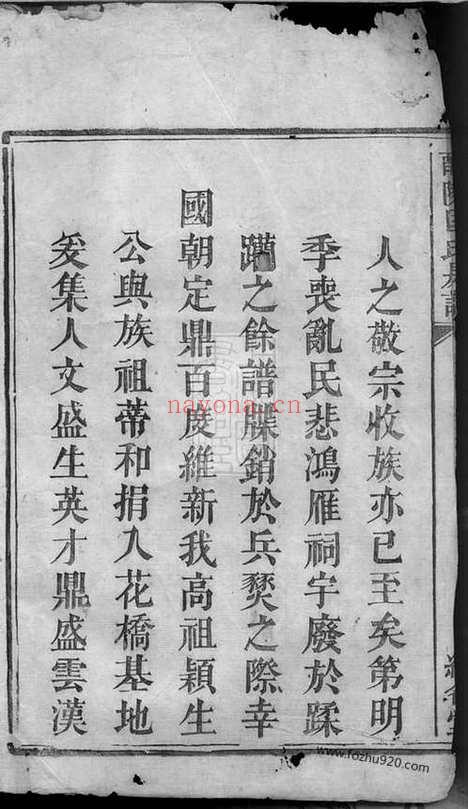 人之敬宗收族亦已至矣第明
季喪亂民悲鴻雁祠宇廢於蹂
躪之餘譜牒銷於兵燹之際幸
國朝定鼎百度維新我高祖穎生
公與族祖蒂和捐入花橋基地
爰集人文盛生英才鼎盛雲漢
nayona.cn
www.fozhu920.com